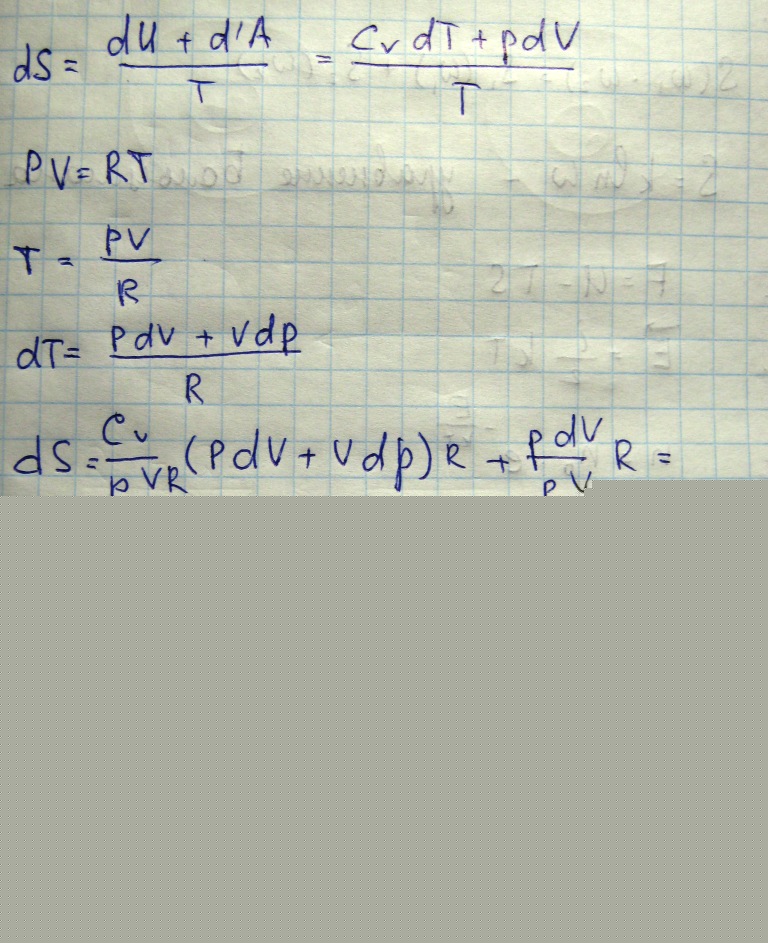 dS = (dU + d'A)/T = (C_v dT + pdV)/T
PV = RT
T = PV/R
dT = (PdV + Vdp)/R
dS = C_v/(pVR) (PdV + Vdp) R + (pdV)/(pV) R =